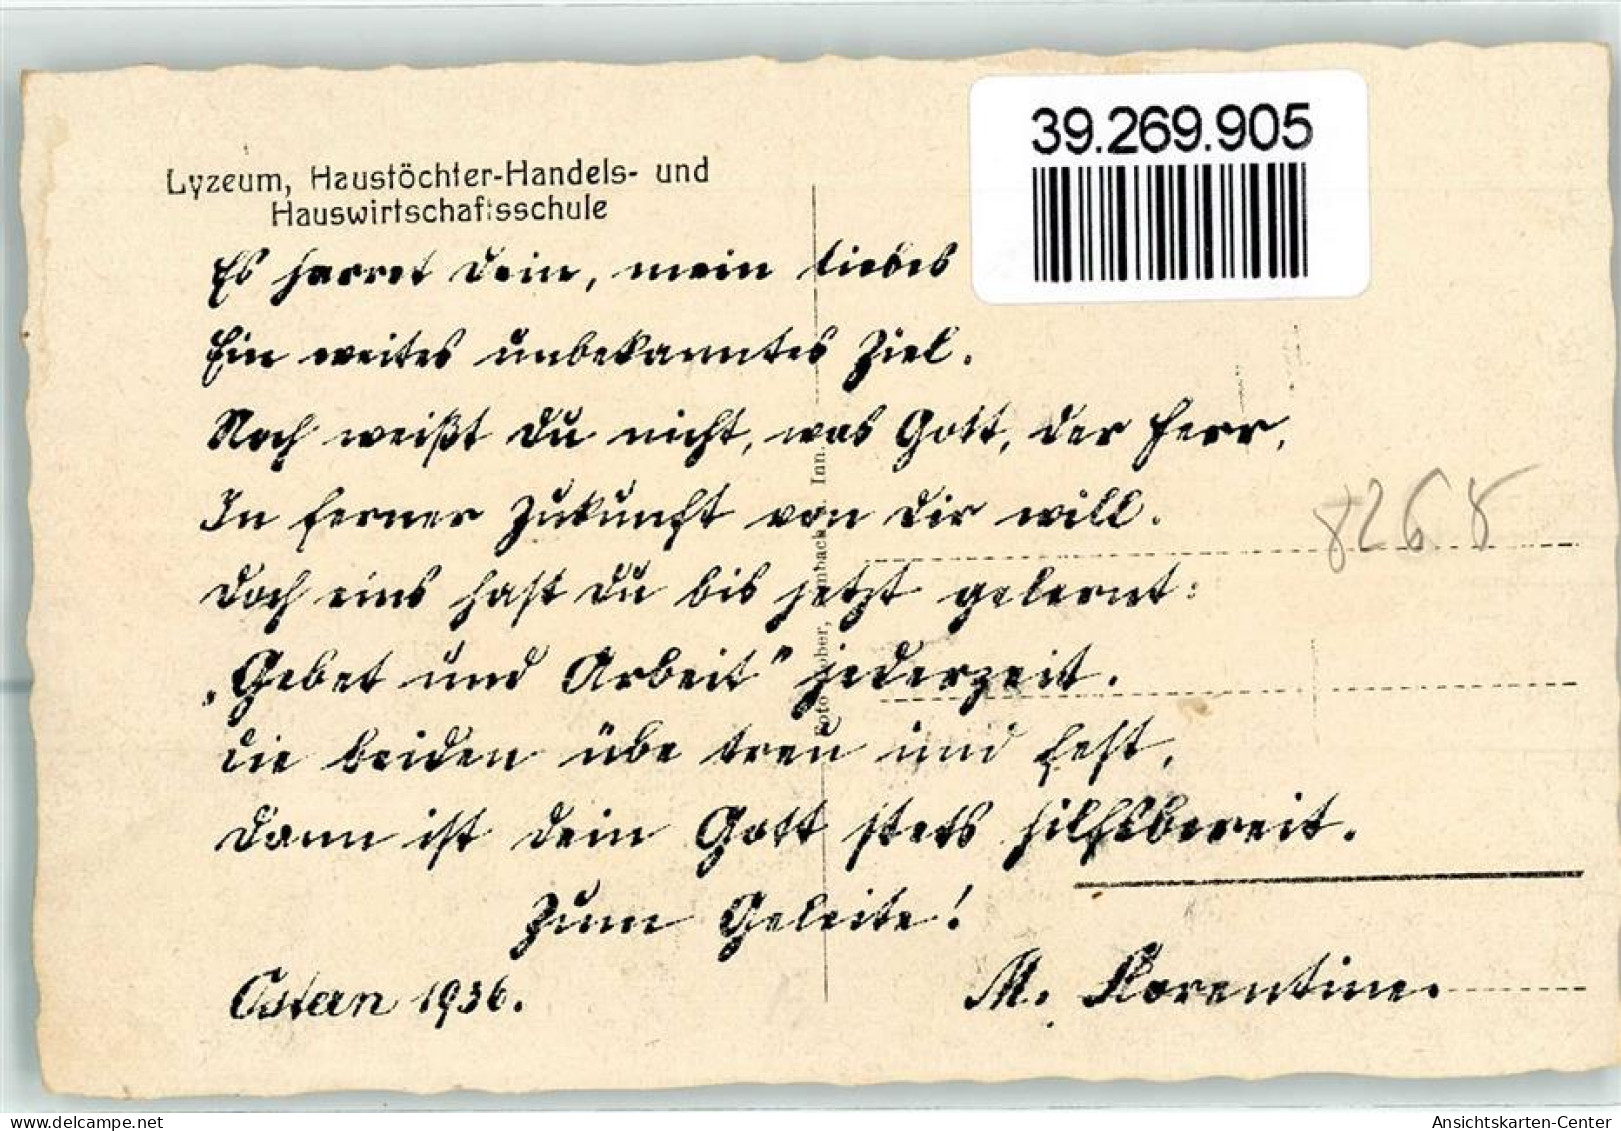 39.269.905
Lyzeum, Haustöchter-Handels- und
Hauswirtschaftsschule
Es harret dein, mein liebes
Ein weites unbekanntes Ziel.
Noch weißt du nicht, was Gott, der Herr,
In ferner Zukunft von dir will.
Doch eins hast du bis jetzt gelernt:
„Gebet und Arbeit" jederzeit.
Die beiden übe treu und fest,
Dann ist dein Gott stets hilfsbereit.
Zum Geleite!
Ostern 1936.
M. Florentine.
8268
Inn.
Ansichtskarten-Center